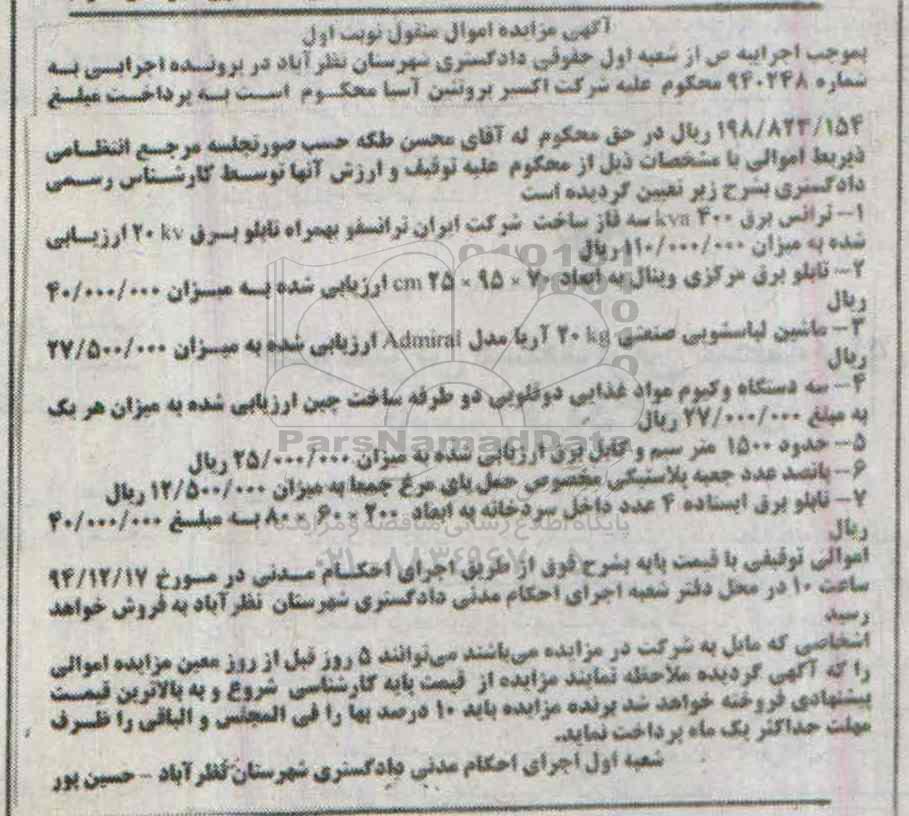 آگهی مزایده اموال منقول نوبت اول
بموجب اجراییه ص از شعبه اول حقوقی دادگستری شهرستان نظرآباد در پرونده اجرایی به
شماره ۹۴۰۲۴۸ محکوم علیه شرکت اکسر پروتئین آسیا محکوم است به پرداخت مبلغ
۱۹۸/۸۲۳/۱۵۴ ریال در حق محکوم له آقای محسن طلکه حسب صورتجلسه مرجع انتظامی
ذیربط اموالی با مشخصات ذیل از محکوم علیه توقیف و ارزش آنها توسط کارشناس رسمی
دادگستری بشرح زیر تعیین گردیده است
۱- ترانس برق ۴۰۰ kva سه فاز ساخت شرکت ایران ترانسفو بهمراه تابلو برق ۲۰ kv ارزیابی
شده به میزان ۱۱۰/۰۰۰/۰۰۰ ریال
۲- تابلو برق مرکزی ویتال به ابعاد ۷۰ × ۹۵ × ۲۵ cm ارزیابی شده به میزان ۴۰/۰۰۰/۰۰۰
ریال
۳- ماشین لباسشویی صنعتی ۲۰ kg آریا مدل Admiral ارزیابی شده به میزان ۲۷/۵۰۰/۰۰۰
ریال
۴- سه دستگاه وکیوم مواد غذایی دوقلویی دو طرفه ساخت چین ارزیابی شده به میزان هر یک
به مبلغ ۲۷/۰۰۰/۰۰۰ ریال
۵- حدود ۱۵۰۰ متر سیم و کابل برق ارزیابی شده به میزان ۲۵/۰۰۰/۰۰۰ ریال
۶- پانصد عدد جعبه پلاستیکی مخصوص حمل پای مرغ جمعا به میزان ۱۲/۵۰۰/۰۰۰ ریال
۷- تابلو برق ایستاده ۴ عدد داخل سردخانه به ابعاد ۲۰۰ × ۶۰ × ۸۰ به مبلغ ۴۰/۰۰۰/۰۰۰
ریال
اموالی توقیفی با قیمت پایه بشرح فوق از طریق اجرای احکام مدنی در مورخ ۹۴/۱۲/۱۷
ساعت ۱۰ در محل دفتر شعبه اجرای احکام مدنی دادگستری شهرستان نظرآباد به فروش خواهد
رسید
اشخاصی که مایل به شرکت در مزایده می‌باشند می‌توانند ۵ روز قبل از روز معین مزایده اموالی
را که آگهی گردیده ملاحظه نمایند مزایده از قیمت پایه کارشناسی شروع و به بالاترین قیمت
پیشنهادی فروخته خواهد شد برنده مزایده باید ۱۰ درصد بها را فی المجلس و الباقی را ظرف
مهلت حداکثر یک ماه پرداخت نماید.
شعبه اول اجرای احکام مدنی دادگستری شهرستان نظرآباد - حسین پور
ParsNamadData
پایگاه اطلاع رسانی مناقصه و مزایده